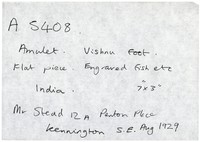 A 5408.
Amulet. Vishnu Feet.
Flat piece. Engraved fish etc
India. 7" x 3"
Mr Stead 12A Penton Place
Kennington S.E. Aug 1929